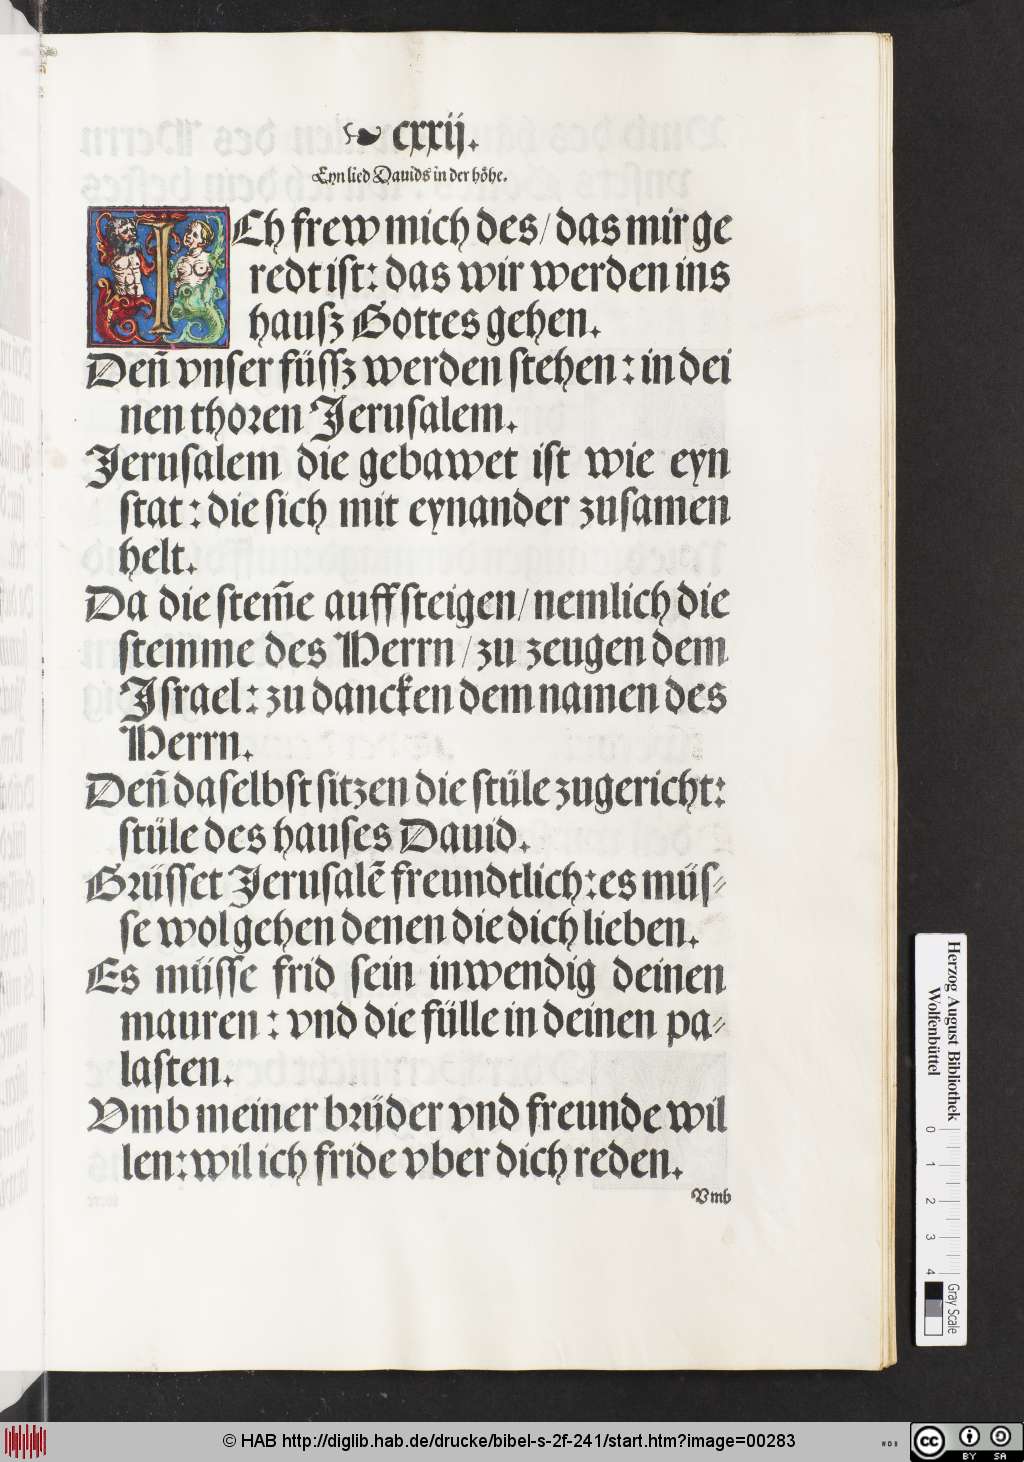 cxxij.
Eyn lied Dauids in der höhe.
ICh frew mich des/das mir ge
redt ist: das wir werden ins
hausz Gottes gehen.
Deñ vnser füssz werden stehen: in dei
nen thoren Jerusalem.
Jerusalem die gebawet ist wie eyn
stat: die sich mit eynander zusamen
helt.
Da die stem̃e auffsteigen/nemlich die
stemme des Herrn/zu zeugen dem
Israel: zu dancken dem namen des
Herrn.
Deñ daselbst sitzen die stüle zugericht:
stüle des hauses Dauid.
Grüsset Jerusalẽ freundtlich: es müs⸗
se wol gehen denen die dich lieben.
Es müsse frid sein inwendig deinen
mauren: vnd die fülle in deinen pa⸗
lasten.
Vmb meiner brüder vnd freunde wil
len: wil ich fride vber dich reden.
Vmb
Herzog August Bibliothek
Wolfenbüttel
0 1 2 3 4
Gray Scale
© HAB http://diglib.hab.de/drucke/bibel-s-2f-241/start.htm?image=00283
WDB
cc BY SA